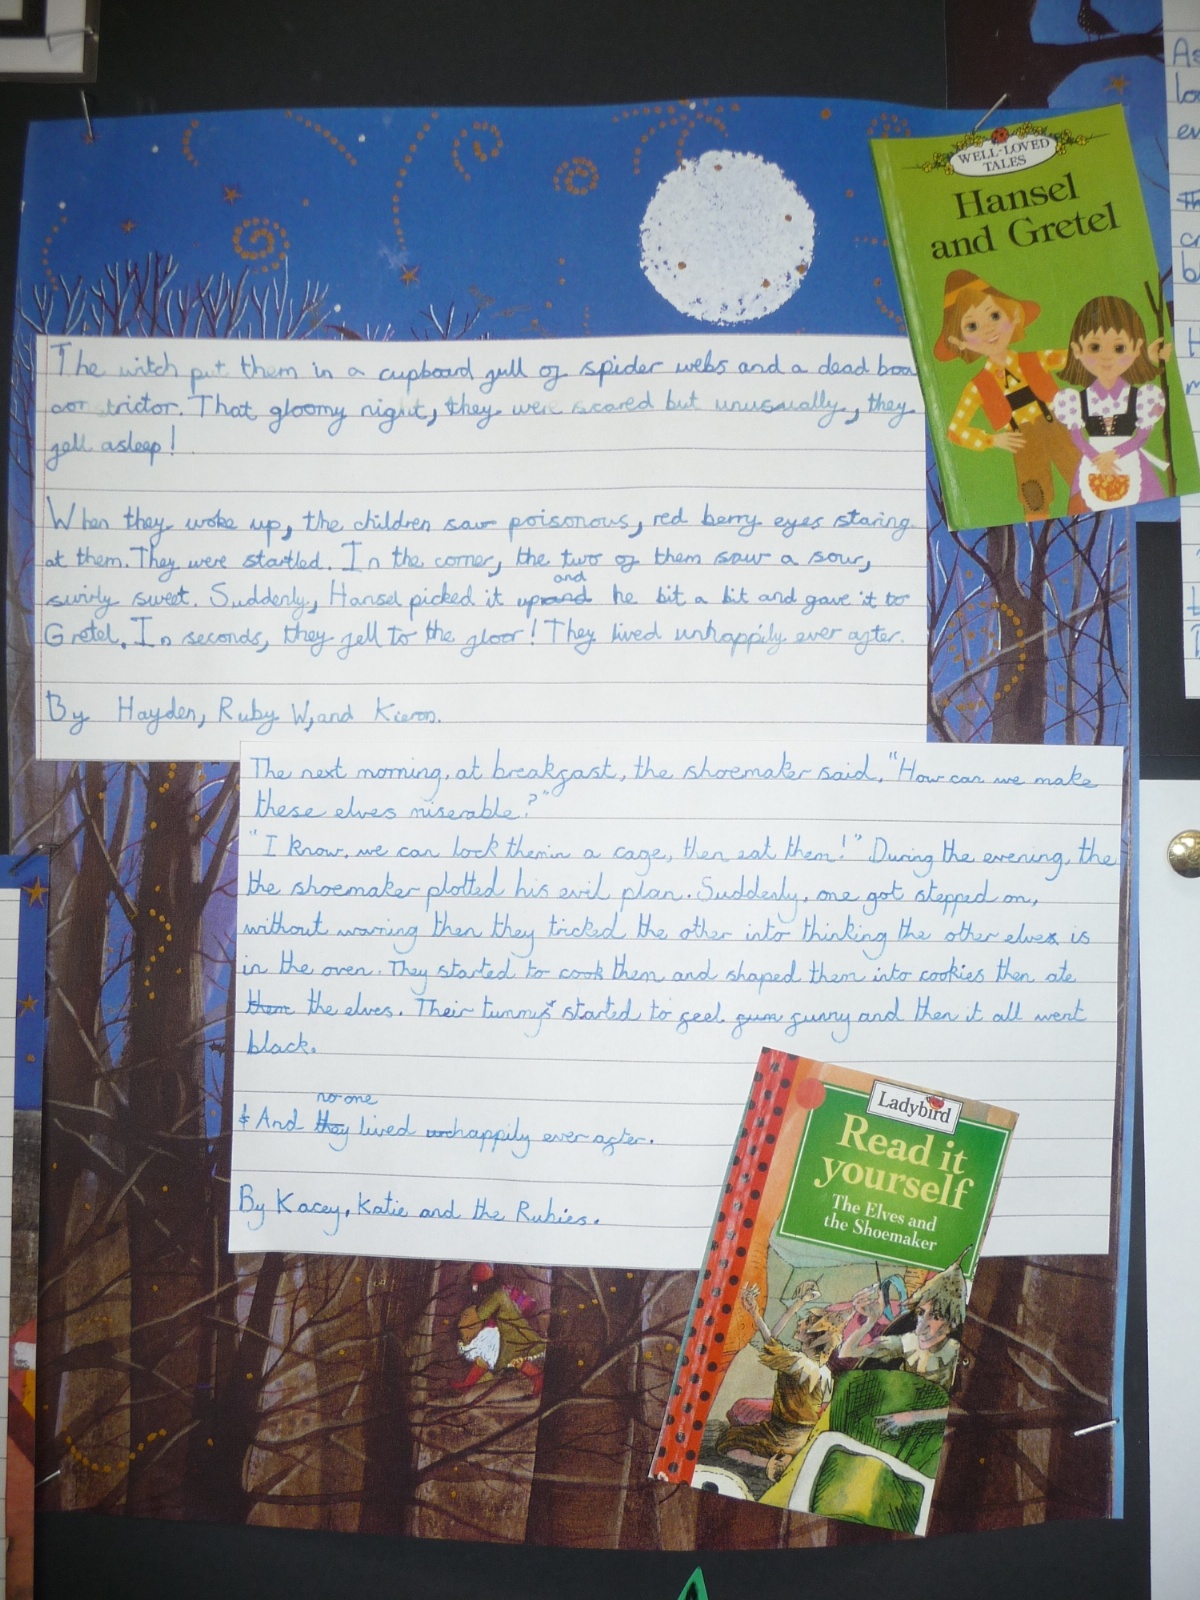 WELL-LOVED
TALES
Hansel
and Gretel
The witch put them in a cupboard full of spider webs and a dead boa
constrictor. That gloomy night, they were scared but unusually, they
fell asleep!
When they woke up, the children saw poisonous, red berry eyes staring
at them. They were startled. In the corner, the two of them saw a sour,
and
swirly sweet. Suddenly, Hansel picked it up and he bit a bit and gave it to
Gretel. In seconds, they fell to the floor! They lived unhappily ever after.
By Hayden, Ruby W, and Kieron.
The next morning, at breakfast, the shoemaker said, "How can we make
these elves miserable?"
"I know, we can lock them in a cage, then eat them!" During the evening, the
the shoemaker plotted his evil plan. Suddenly, one got stepped on,
without warning then they tricked the other into thinking the other elves is
in the oven. They started to cook them and shaped them into cookies then ate
them the elves. Their tummys started to feel fum funny and then it all went
black.
no one
And they lived unhappily ever after.
By Kacey, Katie and the Rubies.
Ladybird
Read it
yourself
The Elves and
the Shoemaker